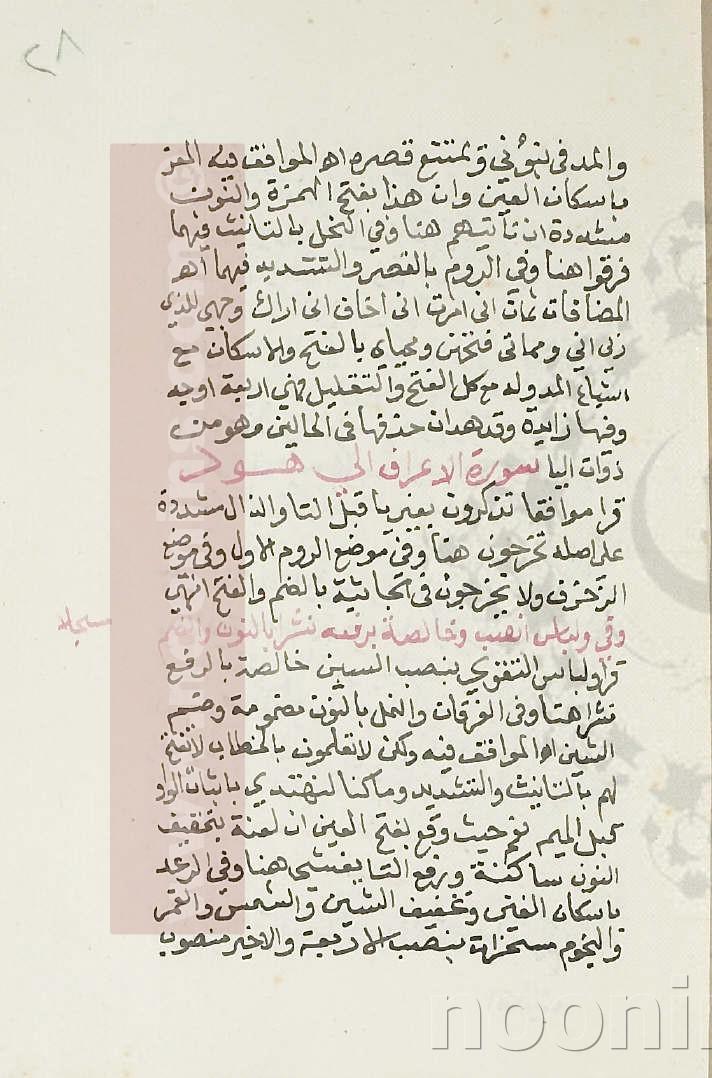 ٢٨
والمد في نبؤني ولمتتع قصره اه الموافق فيه المعز
باسكان العين وان هذا بفتح الهمزة والنون
مشددة ان تأتيهم هنا وفي النحل بالتانيث فيهما
فرقوا هنا وفي الروم بالقصر والتشديد فيهما اهـ
المضافات ثمان اني امرت اني اخاف اني اراك وجهي للذي
ربي اني ومماتي فتحهن ومحياي بالفتح والاسكان مع
اشباع المد وله مع كل الفتح والتقليل فهي اربعة اوجه
وفيها زايدة وقد هدان حذفها في الحالين وهو من
ذوات اليا سورة الاعراف الي هود
قرا موافقا تذكرون بغير يا قبل التا والذال مشددة
على اصله تخرجون هنا وفي موضع الروم الاول وفي موضع
الزخرف ولا يخرجون في الجاثية بالضم والفتح انتهي
وفي ولباس انصب وخالصة برفعه نشرا بالنون والضم مسجلا
قرا ولباس التقوي بنصب السين خالصة بالرفع
نشرا هنا وفي الفرقان والنمل بالنون مضمومة وضم
الشين اه الموافق فيه ولكن لا تعلمون بالخطاب لا تفتح
لهم بالتانيث والتشديد وما كنا لنهتدي باثبات الواو
قبل الميم نعم حيث وقع بفتح العين ان لعنة بتخفيف
النون ساكنة ورفع التا يغشي هنا وفي الرعد
باسكان الغين وتخفيف الشين والشمس والقمر
والنجوم مسخرات بنصب الاربعة والاخير منصوب
noonin